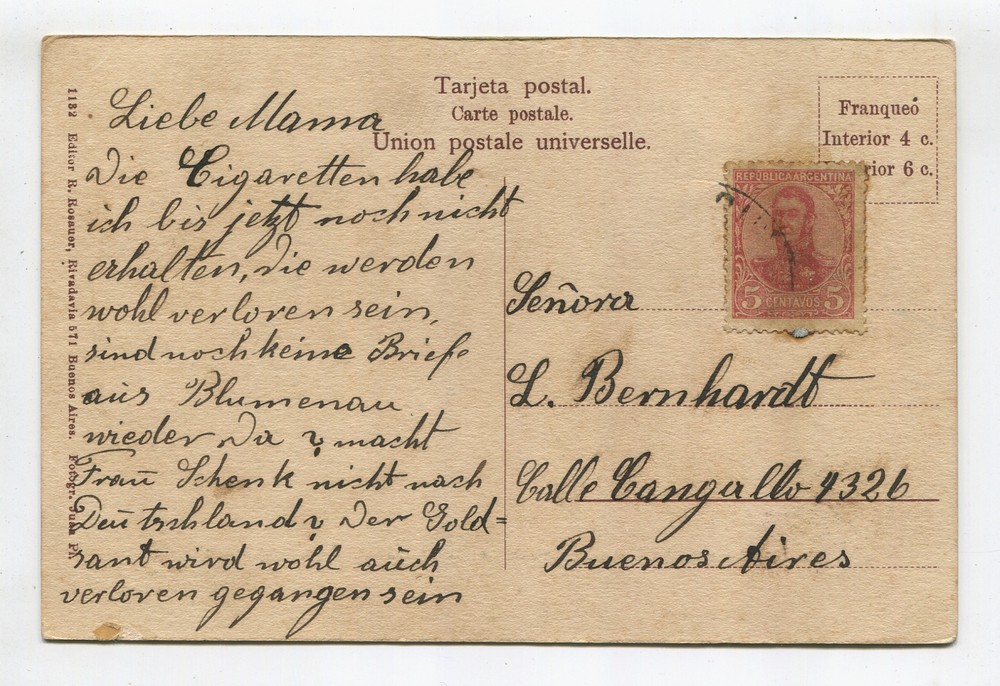 Tarjeta postal.
Carte postale.
Union postale universelle.
Franqueó
Interior 4 c.
rior 6 c.
REPÚBLICA ARGENTINA
5 CENTAVOS 5
1132 Editor R. Rosauer, Rivadavia 571 Buenos Aires. Fotogr.
Liebe Mama
Die Cigaretten habe
ich bis jetzt noch nicht
erhalten, die werden
wohl verloren sein,
sind noch keine Briefe
aus Blumenau
wieder da? macht
Frau Schenk nicht nach
Deutschland? der Gold=
sant wird wohl auch
verloren gegangen sein
Señora
L. Bernhardt
Calle Cangallo 4326
Buenos Aires